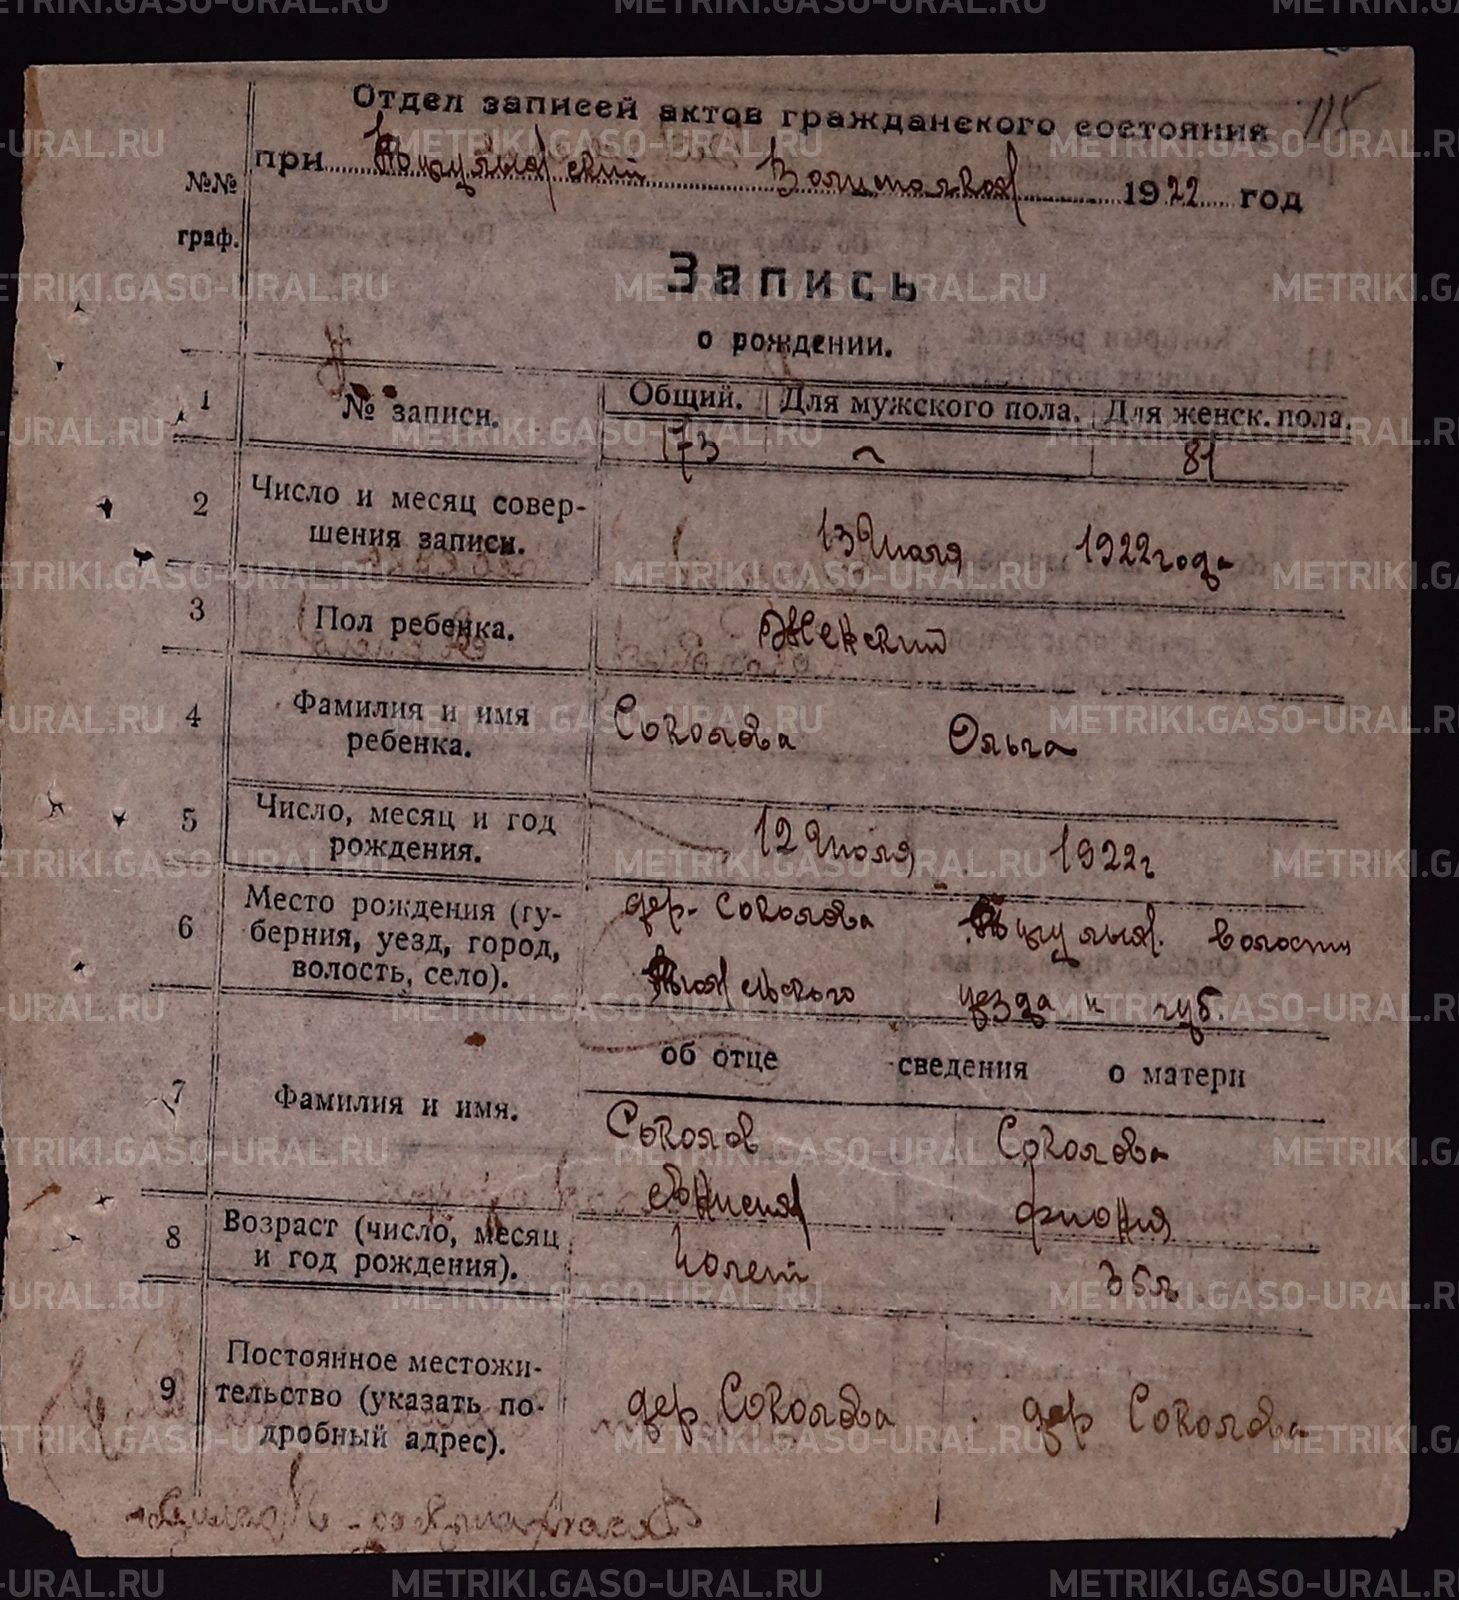 Отдел записей актов гражданского состояния 115
при Волисполкоме 1922 год
№№ граф.
Запись
о рождении.
1 № записи. Общий. Для мужского пола. Для женск. пола.
173 ~ 81
2 Число и месяц совер-
шения записи. 13 Июля 1922 года
3 Пол ребенка. Женский
4 Фамилия и имя
ребенка. Соколова Ольга
5 Число, месяц и год
рождения. 12 Июля 1922 г
6 Место рождения (гу-
берния, уезд, город,
волость, село). дер. Соколова волости
уезда и губ.
об отце сведения о матери
7 Фамилия и имя. Соколов Соколова
8 Возраст (число, месяц
и год рождения). лет 35 л
9 Постоянное местожи-
тельство (указать по-
дробный адрес). дер Соколова дер Соколова
METRIKI.GASO-URAL.RU